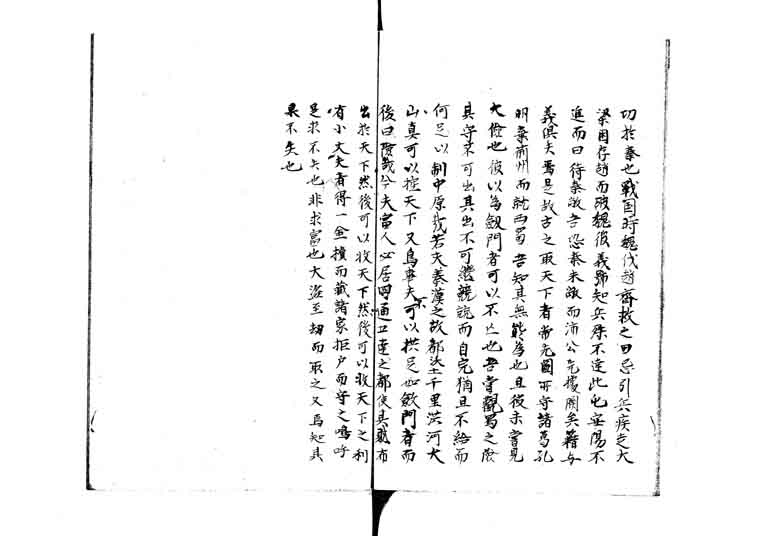 功於秦也戰国時魏伐趙齊救之田忌引兵疾走大
梁因存趙而破魏彼義號知兵殊不達此屯安陽不
進而曰待秦敝吾恐秦未敝而沛公先據関矣籍与
義俱失焉是故古之取天下者常先圖所守諸葛孔
明棄荊州而就西蜀吾知其無能為也且彼未嘗見
大險也彼以為劔門者可以不亡也吾嘗觀蜀之險
其守不可出其出不可継兢兢而自完猶且不給而
何足以制中原哉若夫秦漢之故都沃土千里洪河大
山真可以控天下又烏事夫不可以拱足如劔門者而
後曰險哉今夫富人必居四通五達之都使其財布
出於天下然後可以收天下之利
有小丈夫者得一金櫝而藏諸家拒户而守之嗚呼
是求不失也非求富也大盜至劫而取之又焉知其
果不失也